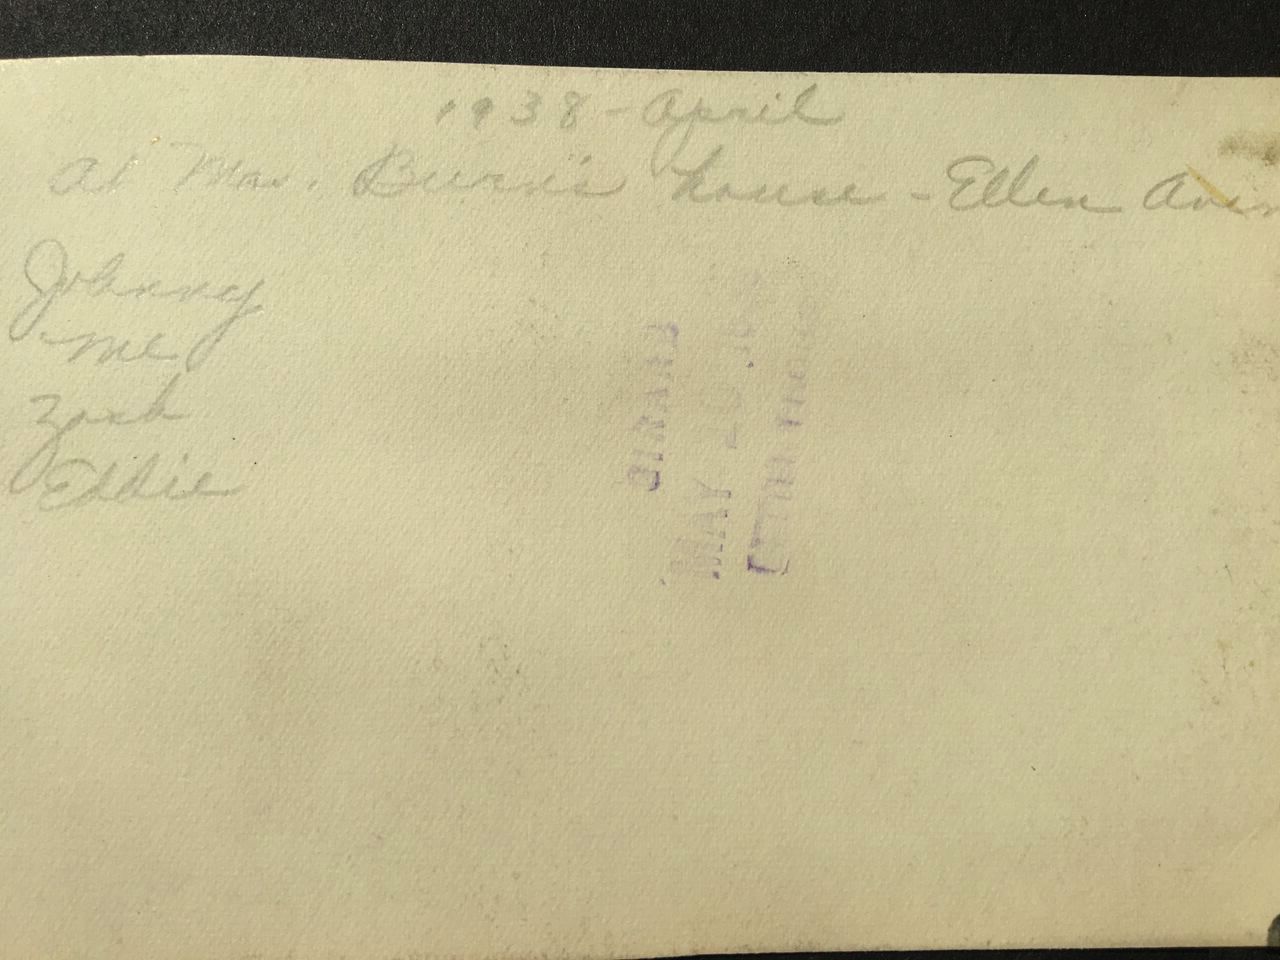 1938 - April
At Mrs. Burn's house - Ellen Aven
Johnny
me
Zosh
Eddie
MAY 20